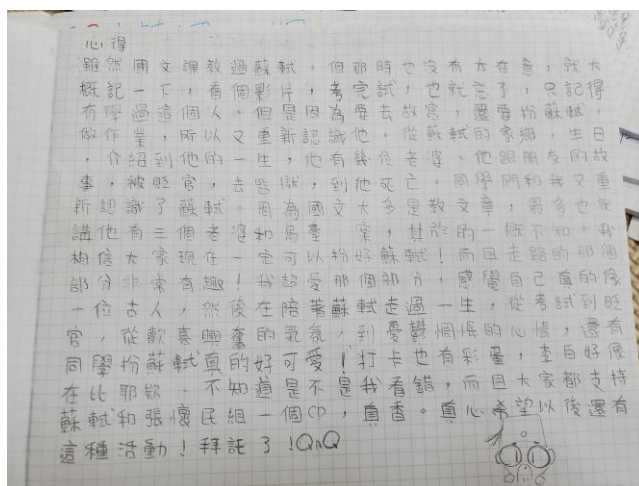 心得
雖然國文課教過蘇軾，但那時也沒有太在意，就大
概記一下，看個影片，考完試，也就忘了，只記得
有學過這個人。但是因為要去故宮，還要扮蘇軾.
做作業，所以又重新認識他。從蘇軾的家鄉，生日
，介紹到他的一生，他有幾位老婆、他跟朋友的故
事，被貶官，去監獄，到他死亡。同學們和我又重
新認識了蘇軾。因為國文大多是教文章，最多也
講他有三個老婆和烏臺 案，其於的一概不知。我
相信大家現在一定可以扮好蘇軾！而且走路的那個
部分非常有趣！我超愛那個部分，感覺自己真的像
一位古人，然後在陪著蘇軾走過一生，從考試到貶
官，從歡喜興奮的氣氛，到憂鬱惆悵的心悵，還有
同學扮蘇軾真的好可愛！打卡也有彩蛋，李白好像
在比耶欸，不知道是不是我看錯，而且大家都支持
蘇軾和張懷民組一個CP，真香。真心希望以後還有
這種活動！拜託了！QAQ